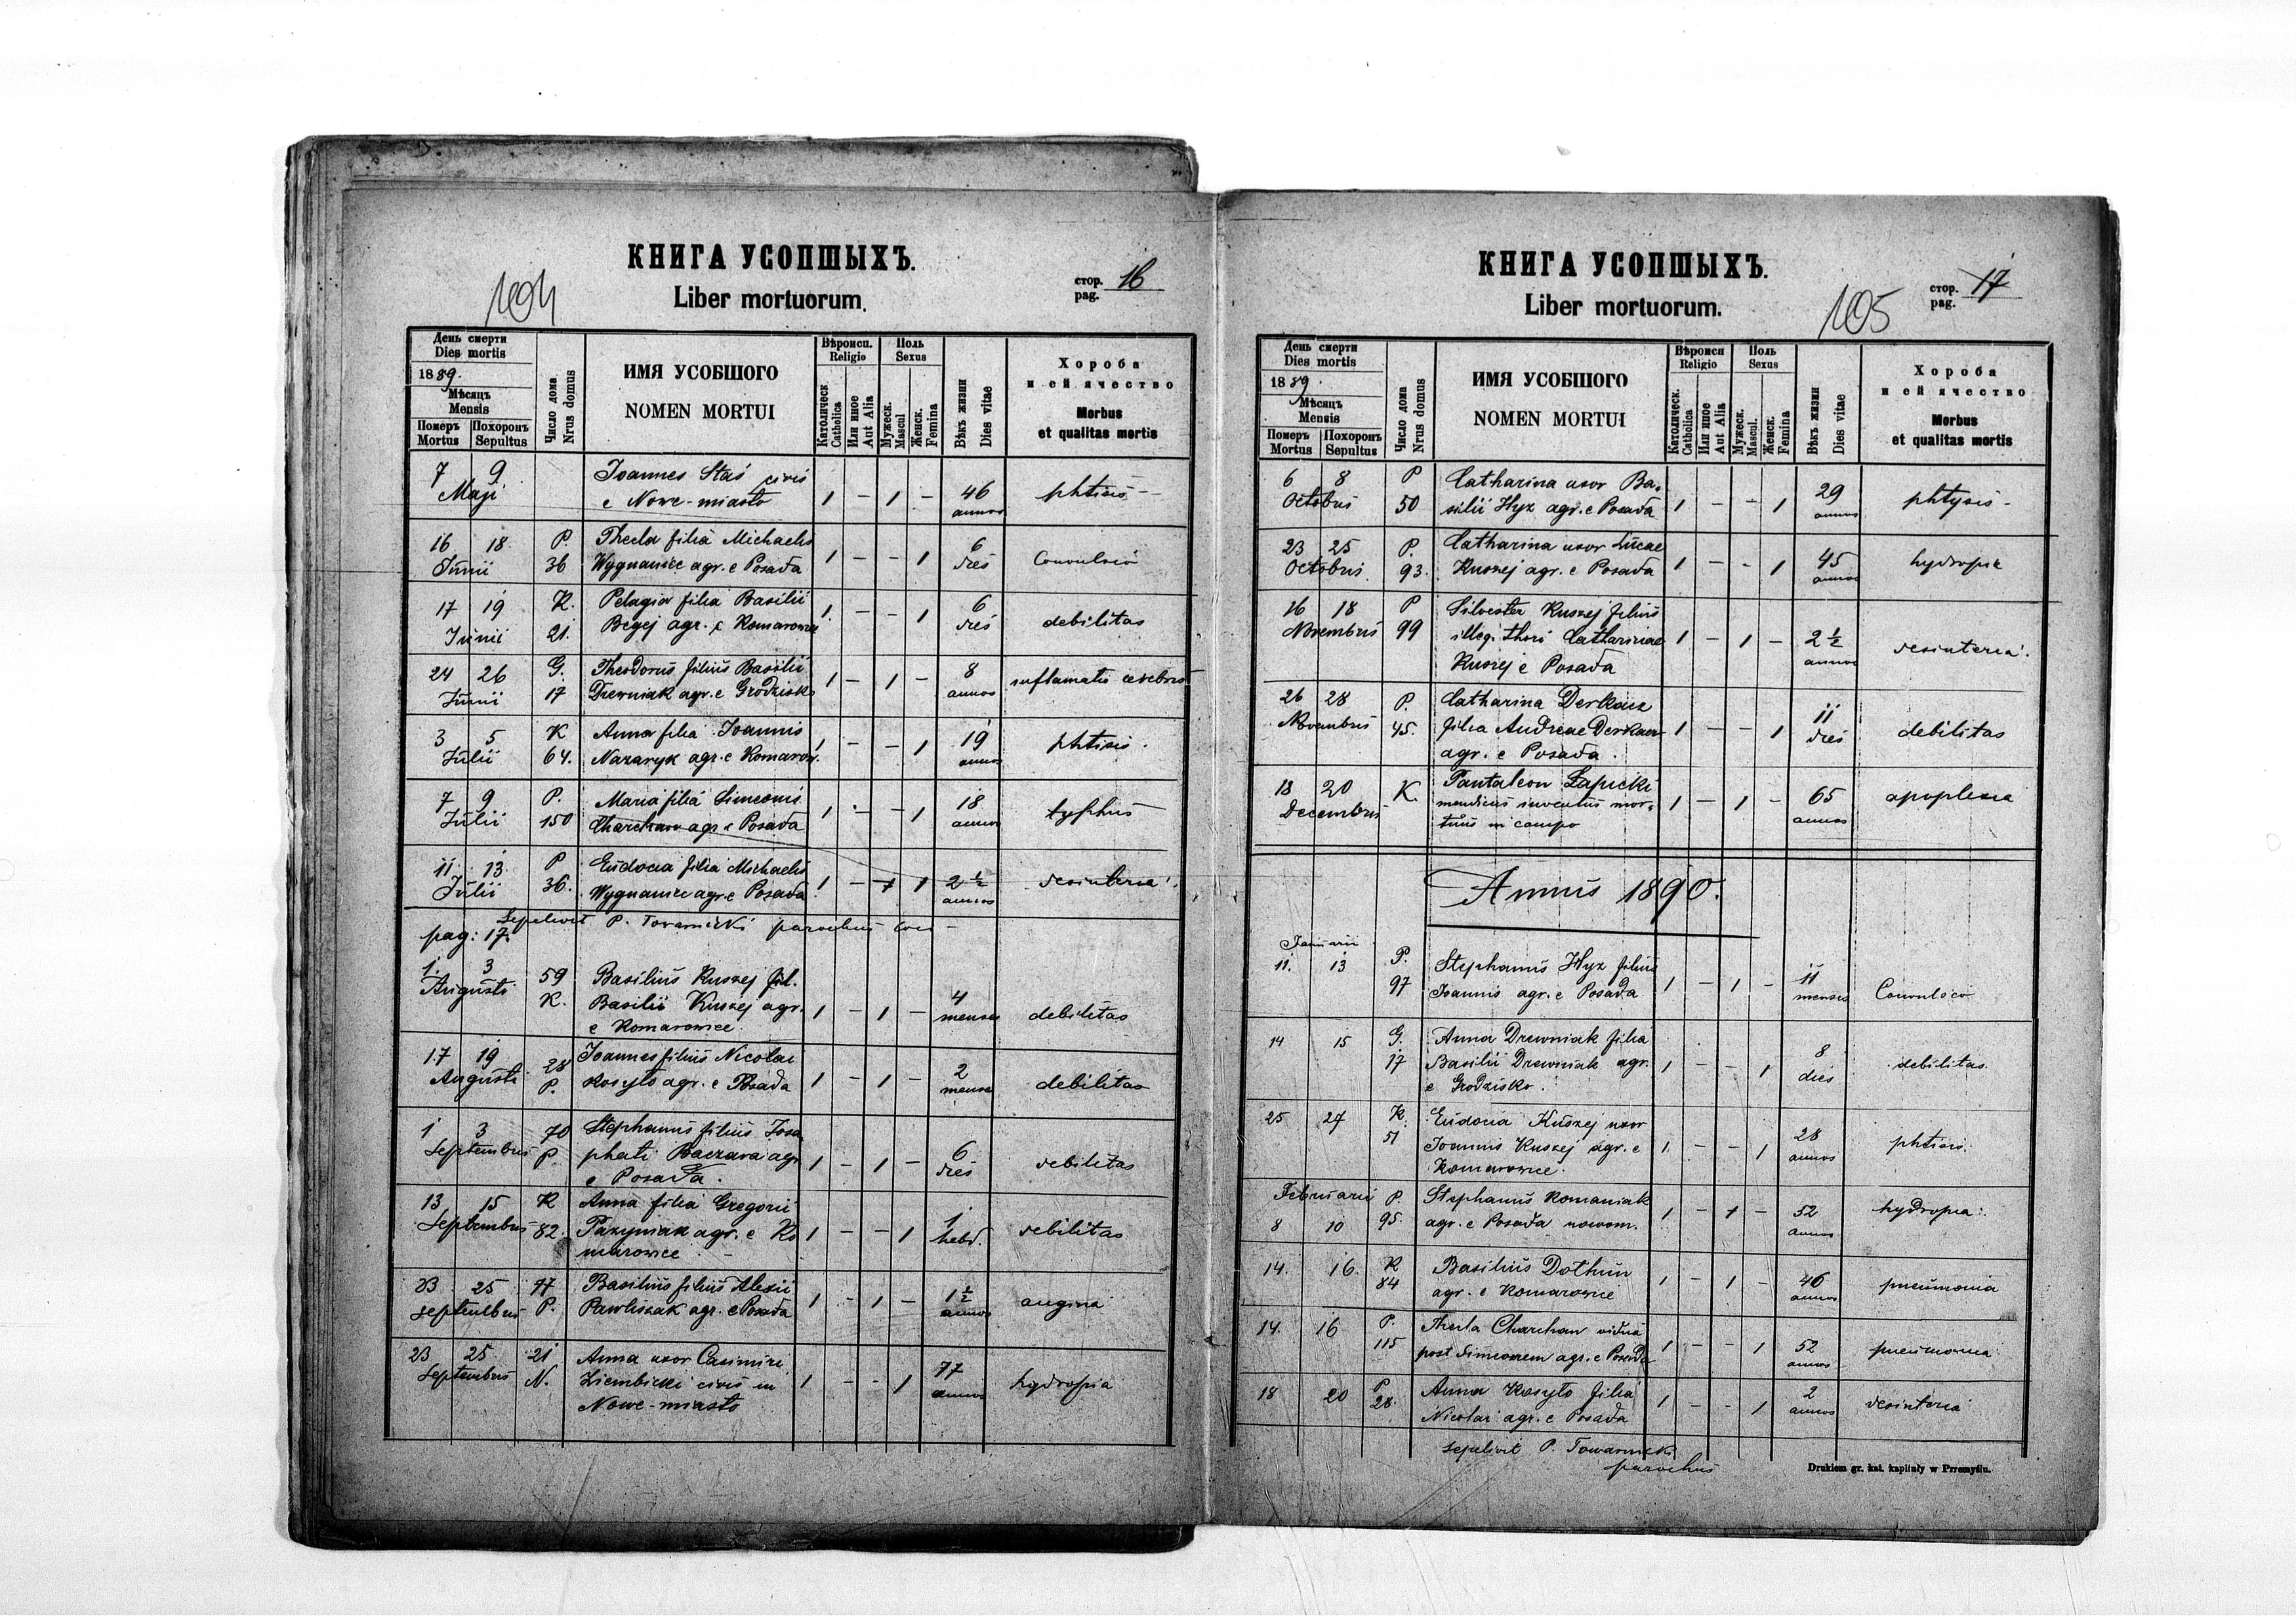 КНИГА УСОПШЫХЪ.
Liber mortuorum.
104
стор. pag. 16
День смерти
Dies mortis
1889.
Мѣсяцъ
Mensis
Померъ Mortus
Похоронъ Sepultus
Число дома
Nrus domus
ИМЯ УСОБШОГО
NOMEN MORTUI
Вѣроисп.
Religio
Католическ
Catholica
Или иное
Aut Alia
Поль
Sexus
Мужеск.
Mascul
Женск.
Femina
Вѣкъ жизни
Dies vitae
Хороба
и ей ячество
Morbus
et qualitas mortis
7 9 Joannes Staś civis
Maji e Nowe-miasto 1 – 1 – 46 annos phtisis
16 18 P. Thecla filia Michaelis
Junii 36 Wygnaniec agr. e Posada 1 – – 1 6 dies Convulsio
17 19 K. Pelagia filia Basilii
Junii 21. Begej agr. e Komarowice 1 – – 1 6 dies debilitas
24 26 G. Theodorus filius Basilii
Junii 17 Drewniak agr. e Grodzisko 1 – 1 – 8 annos inflamatio cerebris
3 5 K Anna filia Joannis
Julii 64. Nazaryk agr. e Komarow. 1 – – 1 19 annos phtisis.
7 9 P. Maria filia Simeonis
Julii 150 Charchan agr. e Posada 1 – – 1 18 annos typhus
11 13 P Eudocia filia Michaelis
Julii 36. Wygnaniec agr. e Posada 1 – 1 1 2 1/2 annos desinteria.
Sepelivit P. Towarnicki parochus loci
pag: 17.
1. 3 59 Basilius Kuszej fil.
Augusti K. Basilii Kuszej agr.
e Komarowice. 1 – 1 – 4 menses debilitas
17 19 28 Joannes filius Nicolai
Augusti P. Kosyto agr. e Posada 1 – 1 – 2 menses debilitas
1 3 70 Stephanus filius Josa
Septembris P. phati Baczara agr.
e Posada. 1 – 1 – 6 dies debilitas
13 15 K Anna filia Gregorii
Septembris 82. Pazyniak agr. e Ko
marowice 1 – – 1 1 hebd. debilitas
23 25 77 Basilius filius Alexii
Septembris P. Pawliszak agr. e Posada 1 – 1 – 1 1/2 annos angina
23 25 21 Anna uxor Casimiri
Septembris N. Ziembicki civis in
Nowe-miasto 1 – – 1 77 annos hydropia
КНИГА УСОПШЫХЪ.
Liber mortuorum.
105
стор. pag. 17
День смерти
Dies mortis
1889.
Мѣсяцъ
Mensis
Померъ Mortus
Похоронъ Sepultus
Число дома
Nrus domus
ИМЯ УСОБШОГО
NOMEN MORTUI
Вѣроисп
Religio
Католическ.
Catholica
Или иное
Aut Alia
Поль
Sexus
Мужеск.
Mascul.
Женск.
Femina
Вѣкъ жизни
Dies vitae
Хороба
и ей ячество
Morbus
et qualitas mortis
6 8 P Catharina uxor Ba-
Octobris 50 silii Hyz agr. e Posada 1 – – 1 29 annos phtysis
23 25 P. Catharina uxor Lucae
Octobris 93. Kuszej agr. e Posada 1 – – 1 45 annos hydropia
16 18 P Silvester Kuszej filius
Novembris 99 illegi. thori Catharinae
Kuszej e Posada 1 – 1 – 2 1/2 annos desinteria.
26 28 P. Catharina Derkacz
Novembris 45. filia Andreae Derkacz
agr. e Posada. 1 – – 1 11 dies debilitas
18 20 K. Pantaleon Łapicki
Decembris mendicus inventus mor-
tuus in campo 1 – 1 – 65 annos apoplexia
Annus 1890.
Januarii
11. 13 P. Stephanus Hyz filius
97 Joannis agr. e Posada 1 – 1 – 11 menses Convulsio
14 15 G. Anna Drewniak filia
17 Basilii Drewniak agr.
e Grodzisko. 1 – – 1 8 dies debilitas.
25 27 K. Eudocia Kuszej uxor
51 Joannis Kuszej agr. e
Komarowice. 1 – – 1 28 annos phtisis.
Februarii P. Stephanus Romaniak
8 10 95. agr. e Posada nowom. 1 – 1 – 52 annos hydropia.
14. 16. K Basilius Dothun
84 agr. e Komarowice 1 – 1 – 46 annos pneumonia
14. 16 P. Thecla Charchan vidua
115 post Simeonem agr. e Posada 1 – – 1 52 annos pneumonia
18 20 P Anna Kosyto filia
28. Nicolai agr. e Posada 1 – – 1 2 annos desinteria
Sepelivit P. Towarnicki
parochus
Drukiem gr. kat. kapituły w Przemyślu.